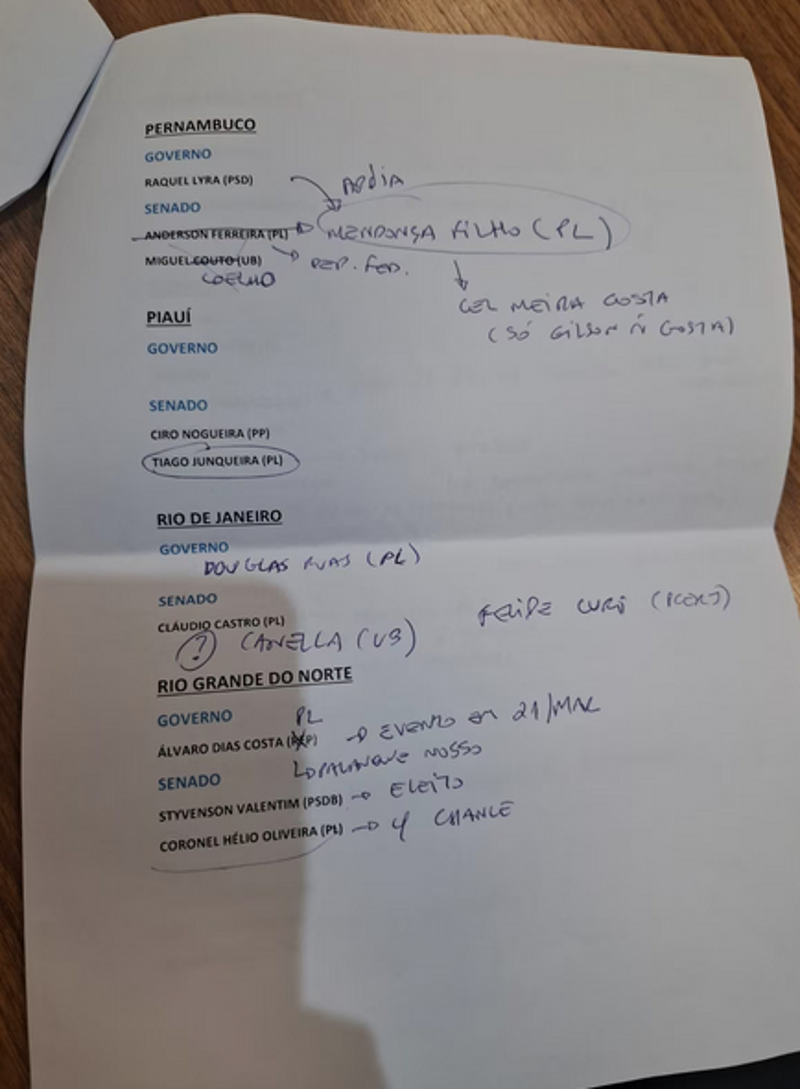 PERNAMBUCO
GOVERNO
RAQUEL LYRA (PSD)
APOIA
SENADO
ANDERSON FERREIRA (PL)
MENDONÇA FILHO (PL)
MIGUEL COUTO (UB)
COELHO
DEP. FED.
CEL MEIRA GOSTA
(SÓ GILSON Ñ GOSTA)
PIAUÍ
GOVERNO
SENADO
CIRO NOGUEIRA (PP)
TIAGO JUNQUEIRA (PL)
RIO DE JANEIRO
GOVERNO
DOUGLAS RUAS (PL)
SENADO
CLÁUDIO CASTRO (PL)
FELIPE CURI (PCERJ)
? CANELLA (UB)
RIO GRANDE DO NORTE
GOVERNO
PL
ÁLVARO DIAS COSTA
EVENTO EM 21/MAR
PALANQUE NOSSO
SENADO
STYVENSON VALENTIM (PSDB)
ELEITO
CORONEL HÉLIO OLIVEIRA (PL)
CHANCE